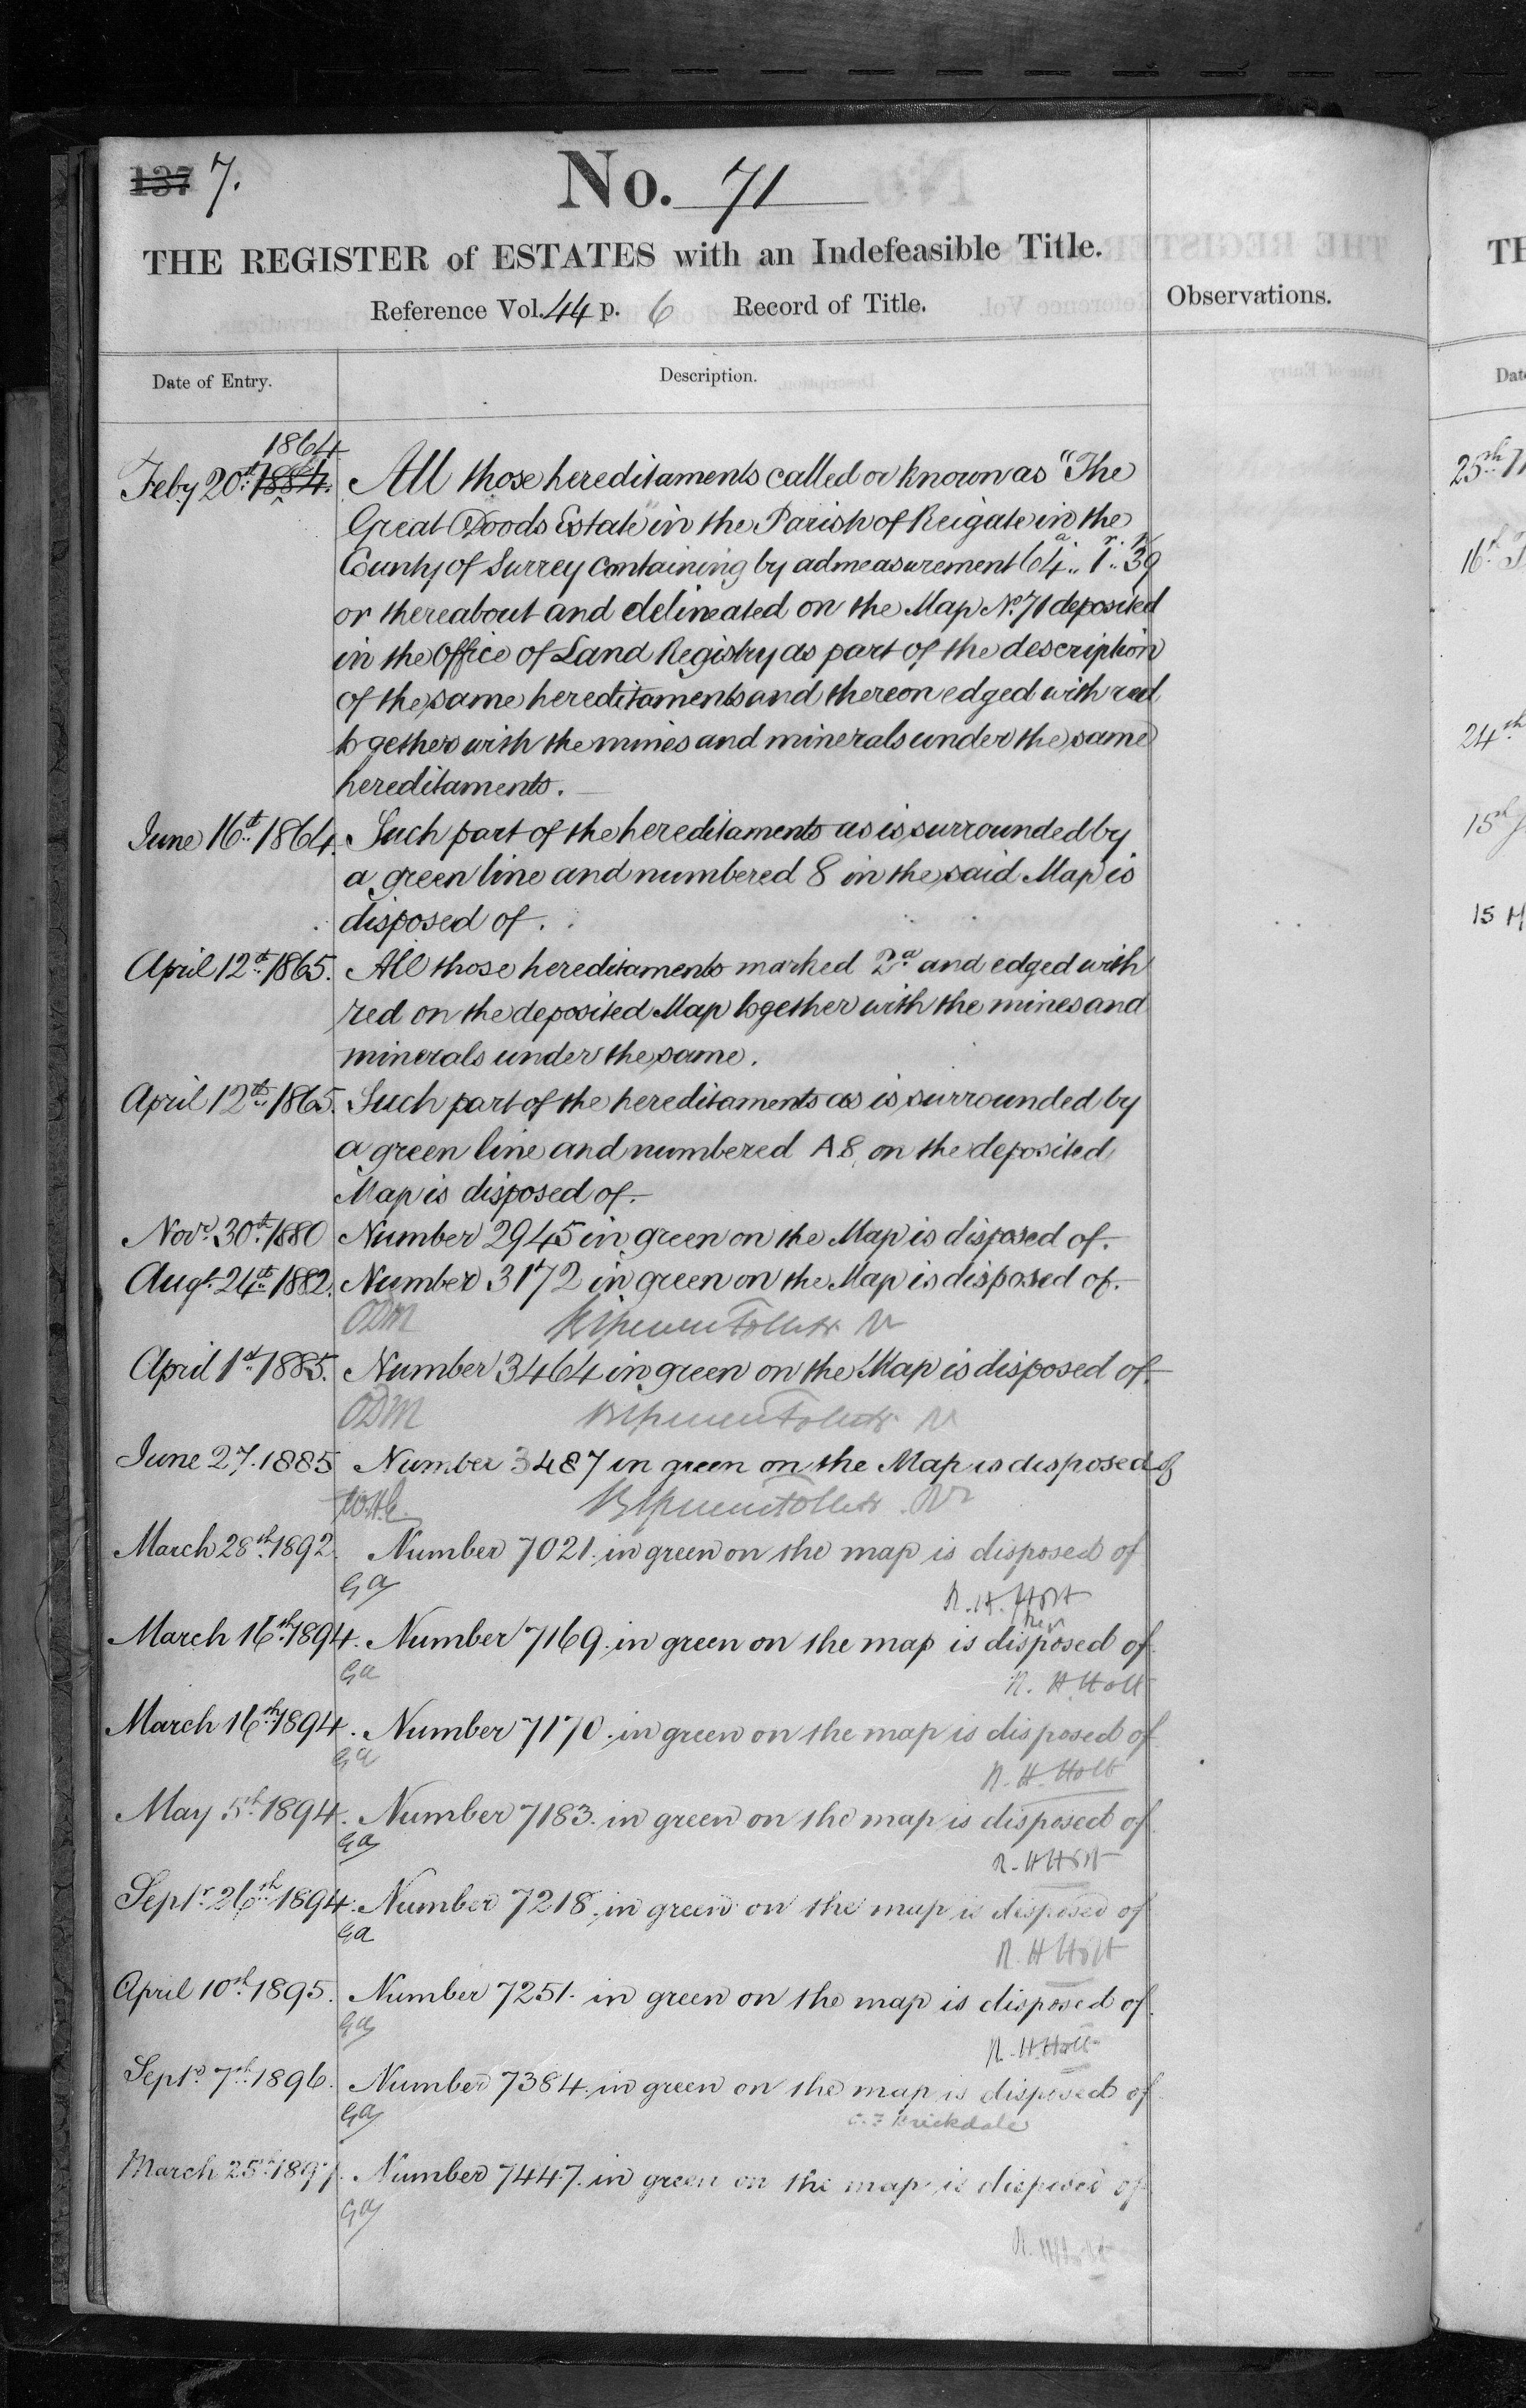 137 7.
No. 71
THE REGISTER of ESTATES with an Indefeasible Title.
Reference Vol. 44 p. 6 Record of Title.
Observations.
Date of Entry.
Description.
1864
Feby 20th 1884. All those hereditaments called or known as "The
Great Doods Estate" in the Parish of Reigate in the
County of Surrey containing by admeasurement 64a.. 1r.. 39p
or thereabout and delineated on the Map No. 71 deposited
in the Office of Land Registry as part of the description
of the same hereditaments and thereon edged with red
together with the mines and minerals under the same
hereditaments.
June 16th 1864. Such part of the hereditaments as is surrounded by
a green line and numbered 8 in the said Map is
disposed of.
April 12th 1865. All those hereditaments marked 2a and edged with
red on the deposited Map together with the mines and
minerals under the same.
April 12th 1865. Such part of the hereditaments as is surrounded by
a green line and numbered A8 on the deposited
Map is disposed of.
Novr. 30th 1880 Number 2945 in green on the Map is disposed of.
Augt. 24th 1882. Number 3172 in green on the Map is disposed of.
ODM
April 1st 1885. Number 3464 in green on the Map is disposed of.
ODM
June 27. 1885 Number 3487 in green on the Map is disposed of
March 28th. 1892. Number 7021. in green on the map is disposed of
Ga R. H. Holt
March 16th. 1894. Number 7169. in green on the map is disposed of.
Ga R. H. Holt
March 16th. 1894. Number 7170. in green on the map is disposed of
Ga R. H. Holt
May 5th. 1894. Number 7183. in green on the map is disposed of.
Ga R. H Holt
Septr. 26th. 1894. Number 7218. in green on the map is disposed of
Ga R. H Holt
April 10th. 1895. Number 7251. in green on the map is disposed of.
Ga R. H. Holt
Septr. 7th. 1896. Number 7384. in green on the map is disposed of
Ga C. F Brickdale
March 25th. 1897. Number 7447. in green on the map is disposed of
Ga
TH
Dat
25th
16th
24th
15th
15 M